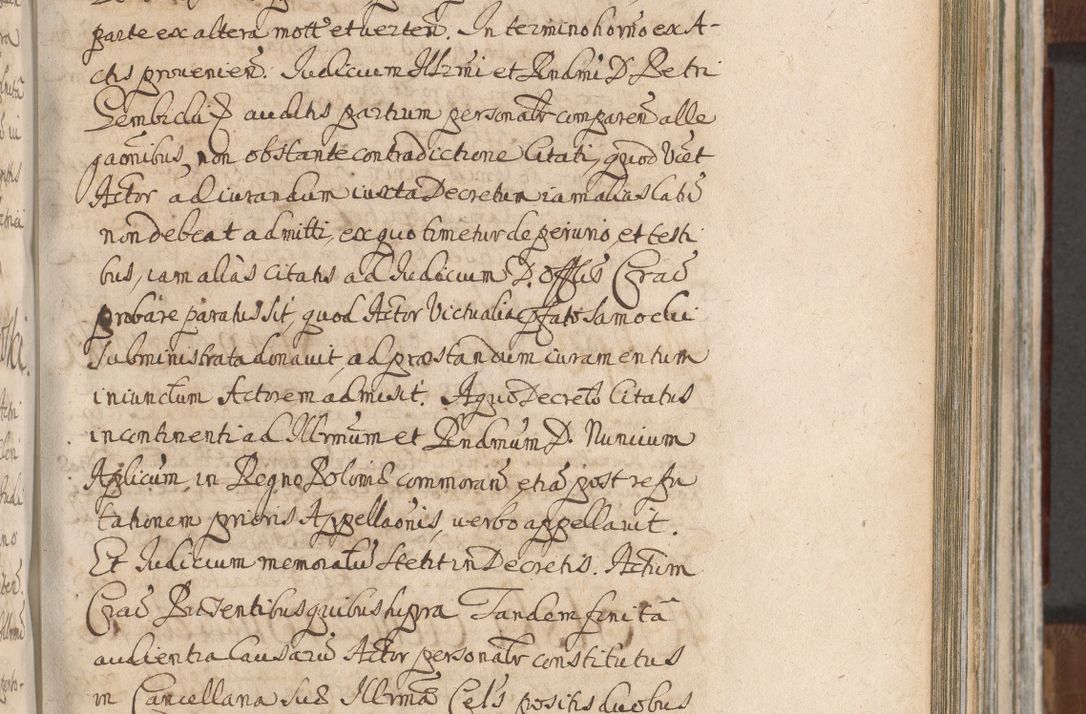 parte ex altera mottẽ et verteñ. In termino horño ex A-
ctis provenieñ. Iudicium Illrmi et Rndmi D. Petri
Gembicki Ep̃ auditis partium personalr̃ compareñ alle
gaõnibus, non obstante contradictione Citati, quod Vicet
Actor ad iurandum iuxta Decretum iam alias latũ
non debeat admitti, ex quo timetur de periurio, et testi
bus, iam aliàs citatis ad Iudicium D. Offlis Craĉ
probare paratus sit, quod Actor Victualia p̃fato Samocki
subministrata donavit, ad præstandum iuramentum
iniunctum Actorem admisit. A quo Decreto Citatus
incontinenti ad Illrmũm et Rndmũm D. Nuncium
Apl̃icum in Regno Poloniæ commorañ, etiã post refu
tationem prioris Appellaõnis, verbo appellavit.
Et Iudicium memoratũ stetit in Decretis. Actum
Craĉ Præsentibus quibus supra Tandem finitâ
audientia Causarũ Actor personalr̃ constitutus
in Cancellaria Suæ Illrmæ Cels positis duobus